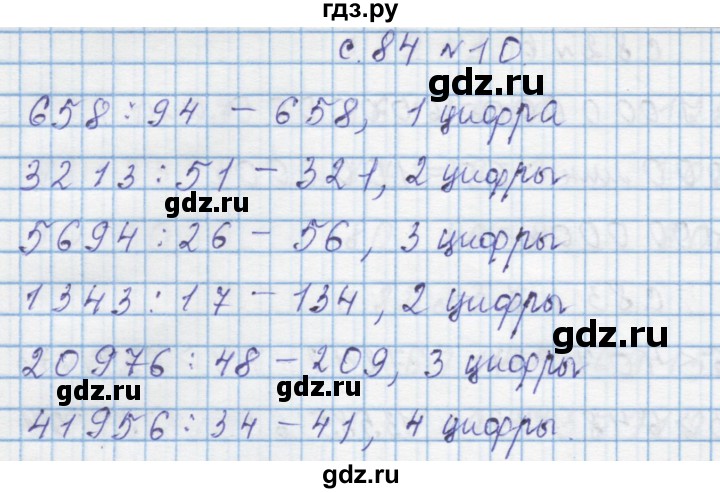 гдз.ру
с. 84 №10.
gdz.ru
658 : 94 – 658, 1 цифра
3213 : 51 – 321, 2 цифры
gdz.ru
5694 : 26 – 56, 3 цифры
1343 : 17 – 134, 2 цифры
gdz.ru
20976 : 48 – 209, 3 цифры
gdz.ru gdz.ru
41956 : 34 – 41, 4 цифры.
gdz.ru